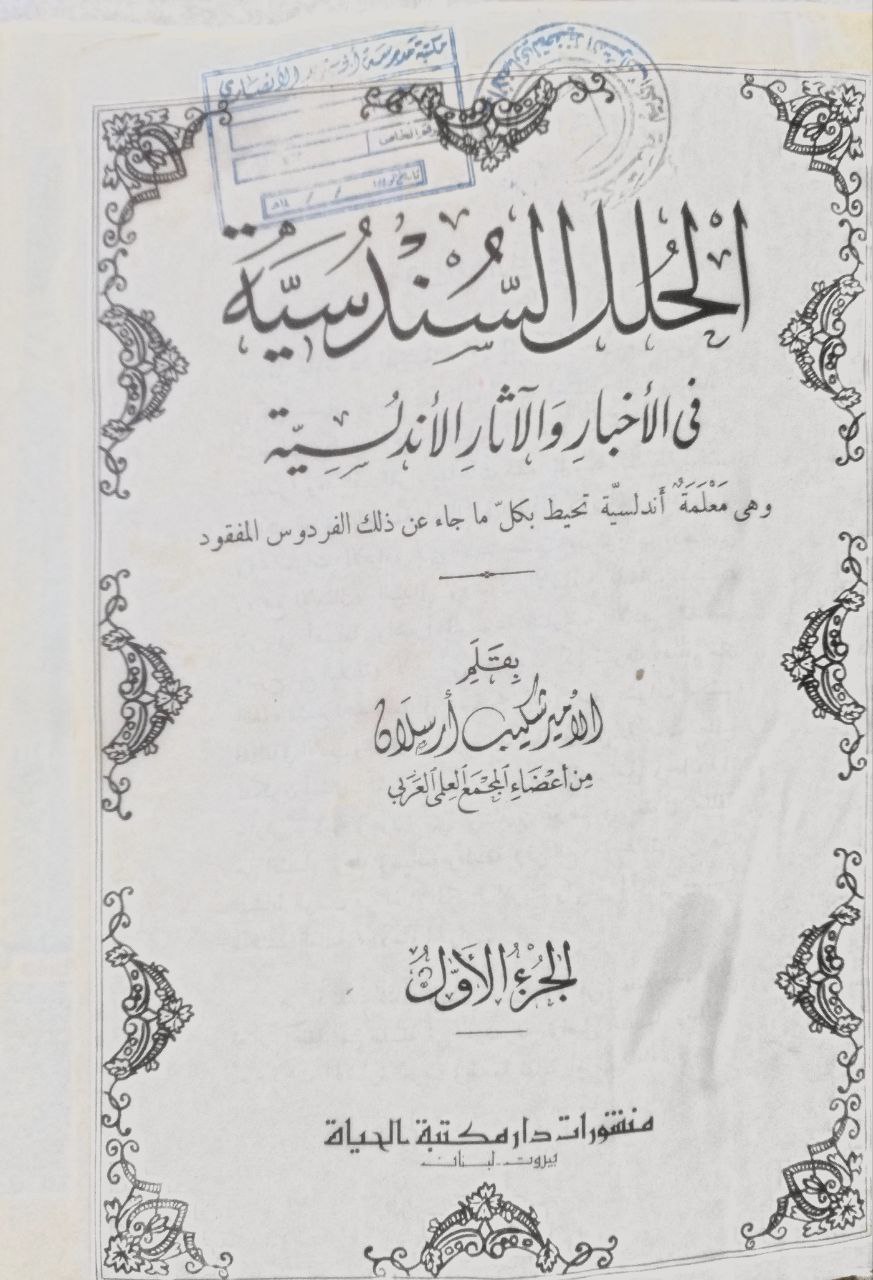 مكتبة مدرسة الأنصاري
الْحُلَل السُّنْدُسيَّة
فى الأخبارِ وَالآثارِ الأندلُسِيّة
وهى مَعْلَمَةٌ أندلسيَّة تحيط بكلّ ما جاء عن ذلك الفردوس المفقود
بِقَلَمِ
الأمير شكيب أرسلان
مِن أعْضَاءِ المَجْمَع العِلمى العَرَبي
الجزءُ الأَوّلُ
منشورات دار مكتبة الحياة
بيروت - لبنان